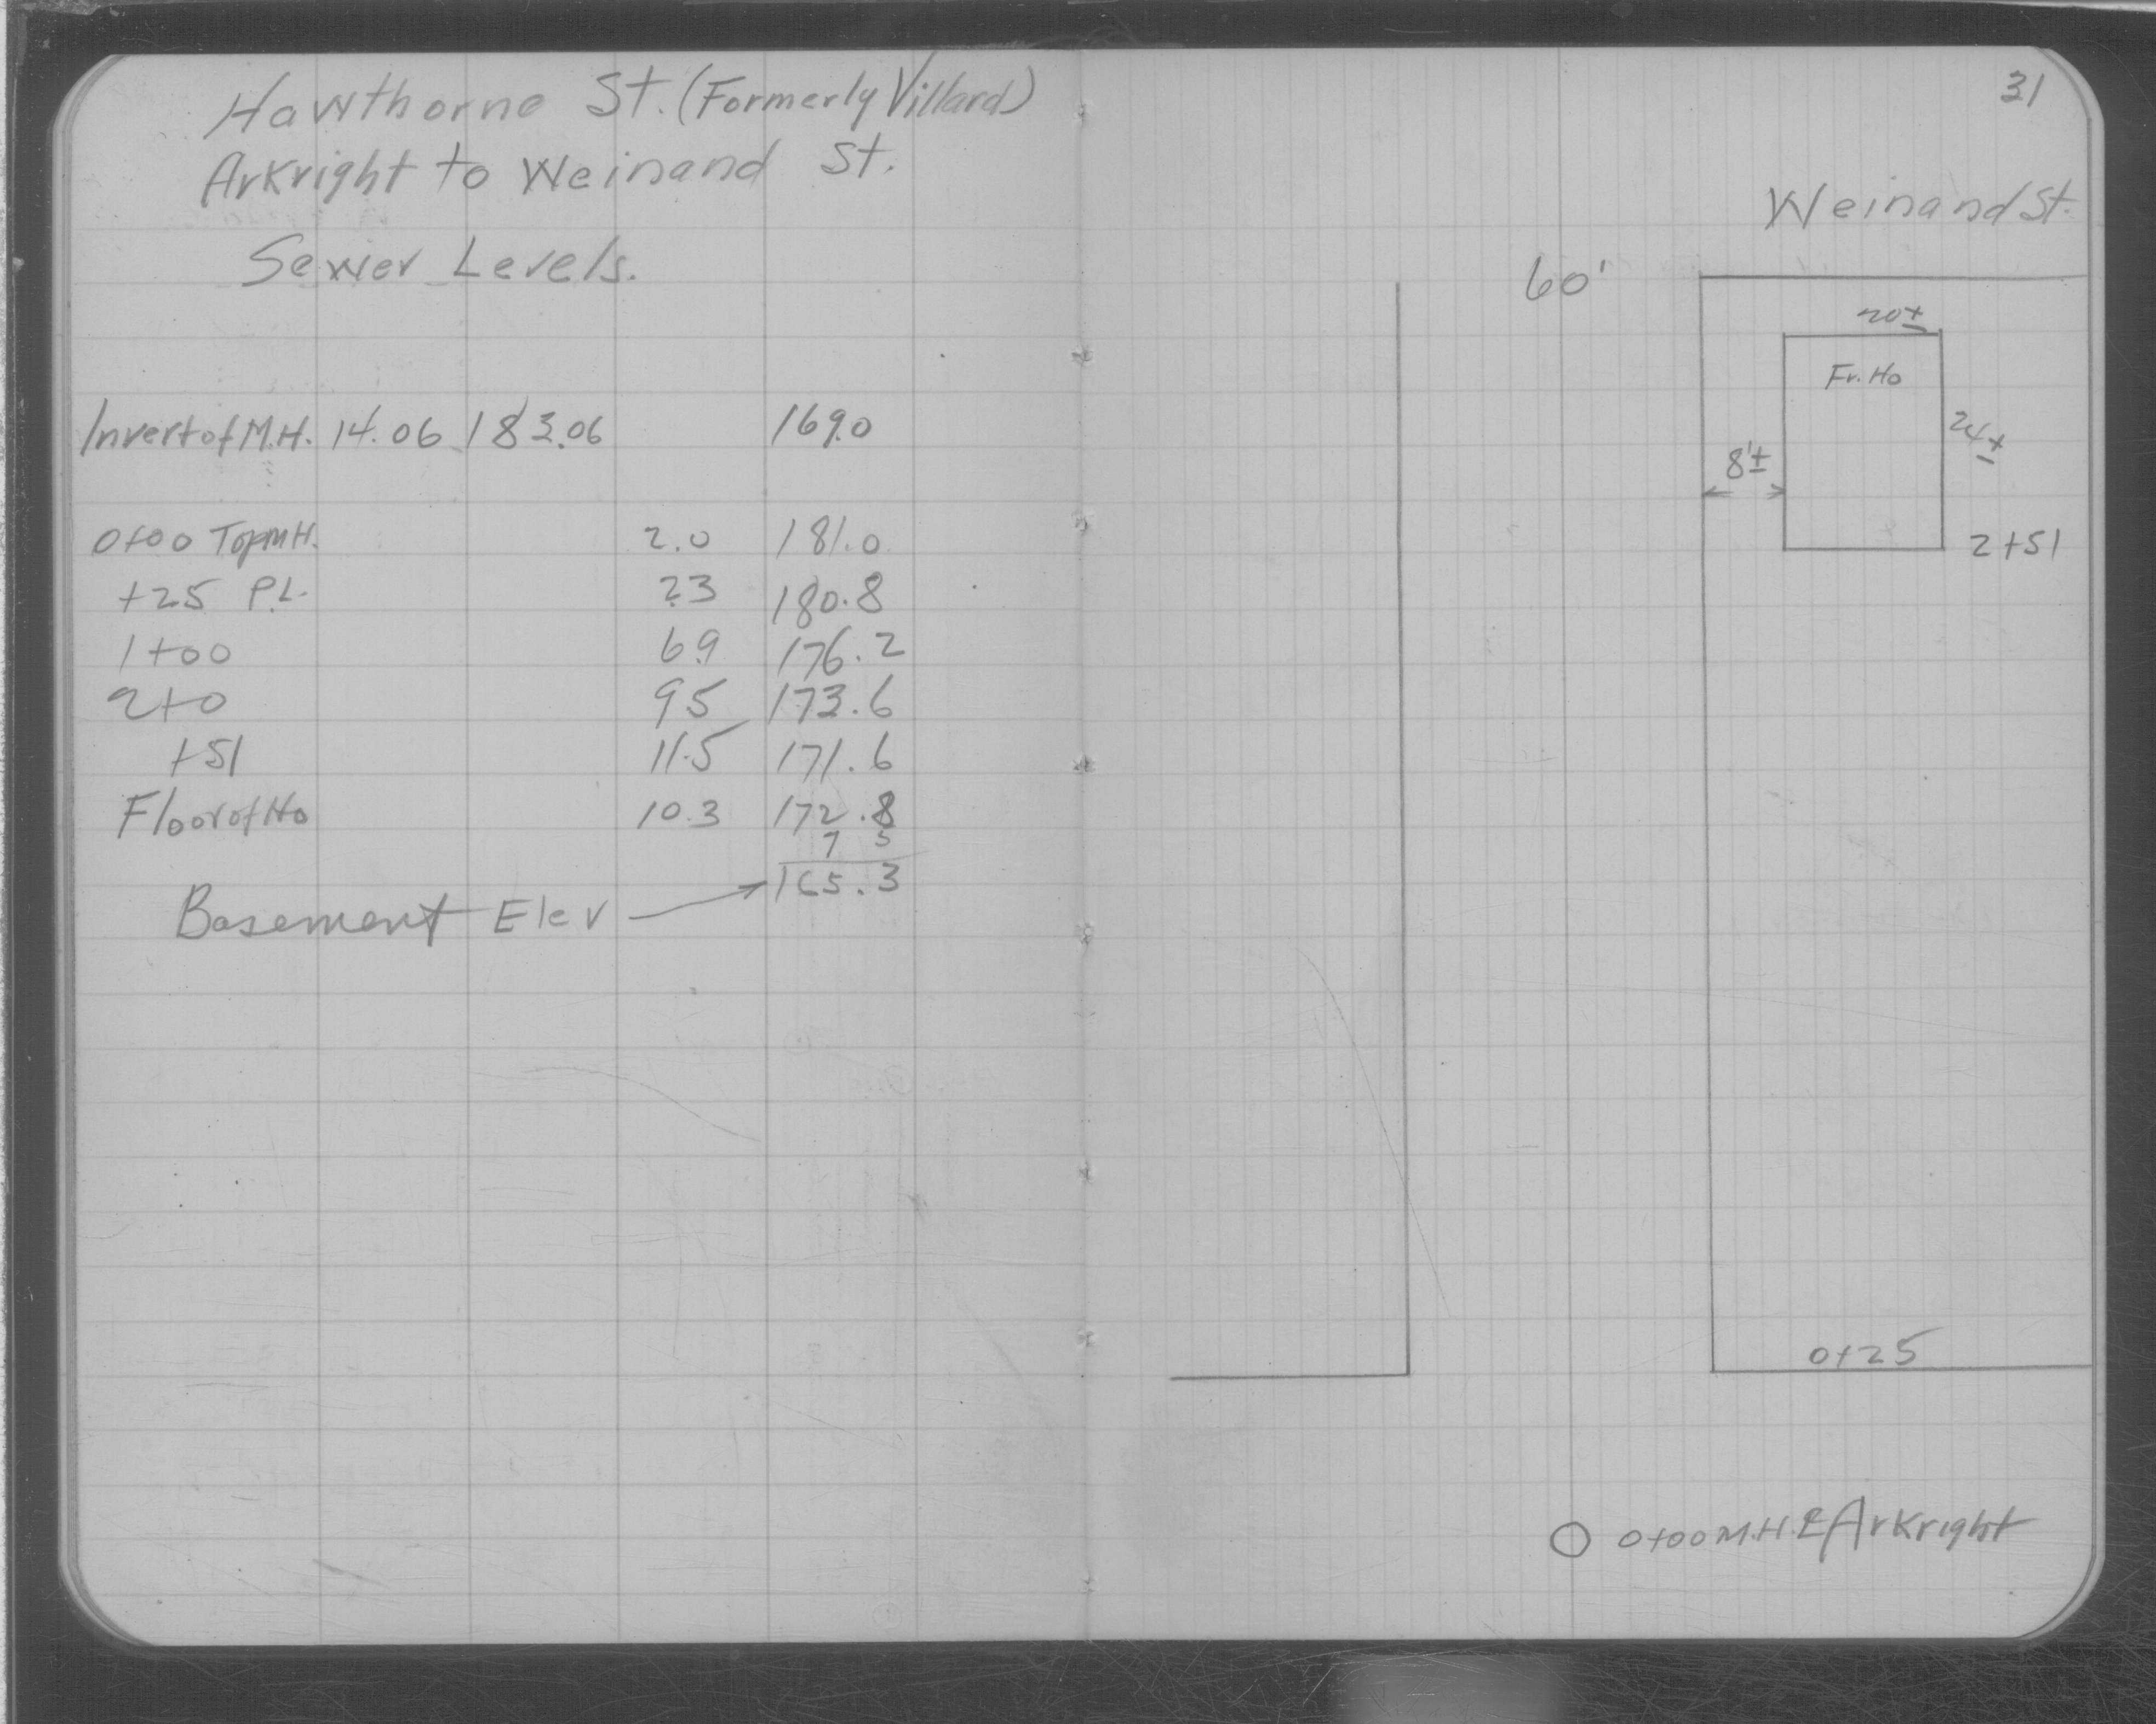 Hawthorne St. (Formerly Villard)
Arkright to Weinand St.
Sewer Levels.
Invert of M.H. 14.06 183.06 169.0
0+00 Top M.H. 2.0 181.0
+25 P.L. 2.3 180.8
1+00 6.9 176.2
2+0 9.5 173.6
+51 11.5 171.6
Floor of Ho 10.3 172.8
7 5
Basement Elev 165.3
31
Weinand St.
60'
20±
Fr. Ho
24±
8'±
2+51
0+25
0+00 M.H. ℄ Arkright